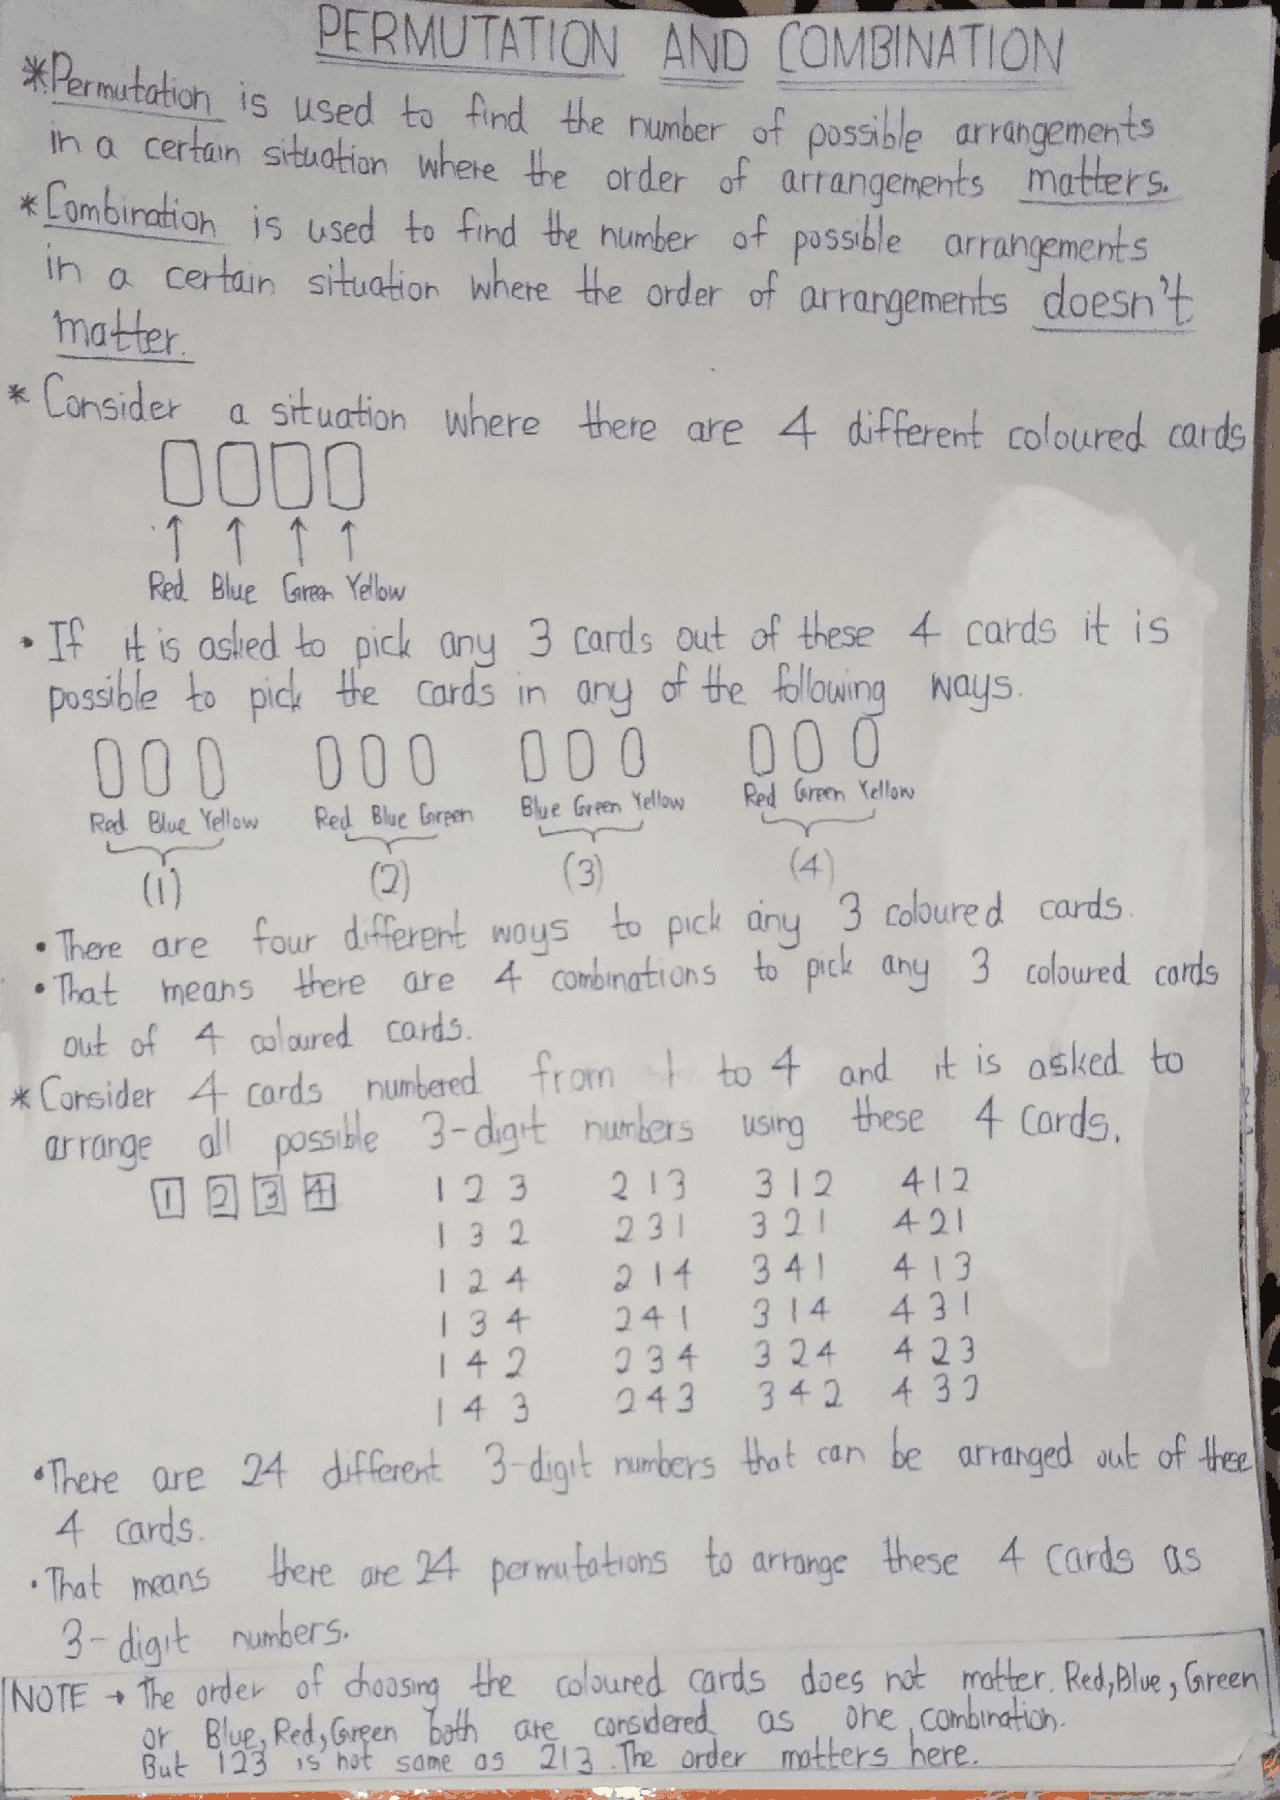 PERMUTATION AND COMBINATION
*Permutation is used to find the number of possible arrangements
in a certain situation where the order of arrangements matters.
*Combination is used to find the number of possible arrangements
in a certain situation where the order of arrangements doesn't
matter.
* Consider a situation where there are 4 different coloured cards
↑ ↑ ↑ ↑
Red Blue Green Yellow
• If it is asked to pick any 3 cards out of these 4 cards it is
possible to pick the cards in any of the following ways.
Red Blue Yellow Red Blue Green Blue Green Yellow Red Green Yellow
(1) (2) (3) (4)
• There are four different ways to pick any 3 coloured cards.
• That means there are 4 combinations to pick any 3 coloured cards
out of 4 coloured cards.
* Consider 4 cards numbered from 1 to 4 and it is asked to
arrange all possible 3-digit numbers using these 4 cards.
1 2 3 4 1 2 3 2 1 3 3 1 2 4 1 2
1 3 2 2 3 1 3 2 1 4 2 1
1 2 4 2 1 4 3 4 1 4 1 3
1 3 4 2 4 1 3 1 4 4 3 1
1 4 2 2 3 4 3 2 4 4 2 3
1 4 3 2 4 3 3 4 2 4 3 2
• There are 24 different 3-digit numbers that can be arranged out of these
4 cards.
• That means there are 24 permutations to arrange these 4 cards as
3-digit numbers.
NOTE → The order of choosing the coloured cards does not matter. Red, Blue, Green
or Blue, Red, Green both are considered as one combination.
But 123 is not same as 213. The order matters here.